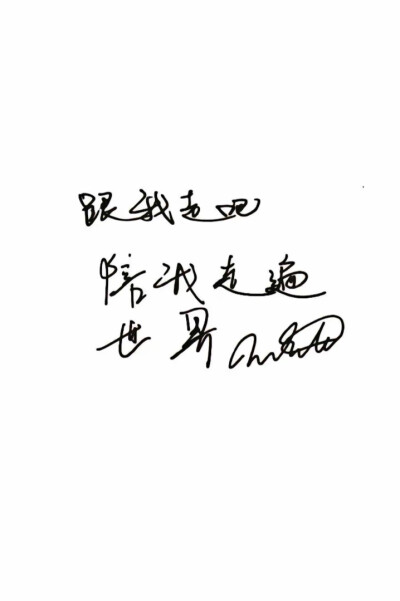 跟我走吧
陪我走遍
世界